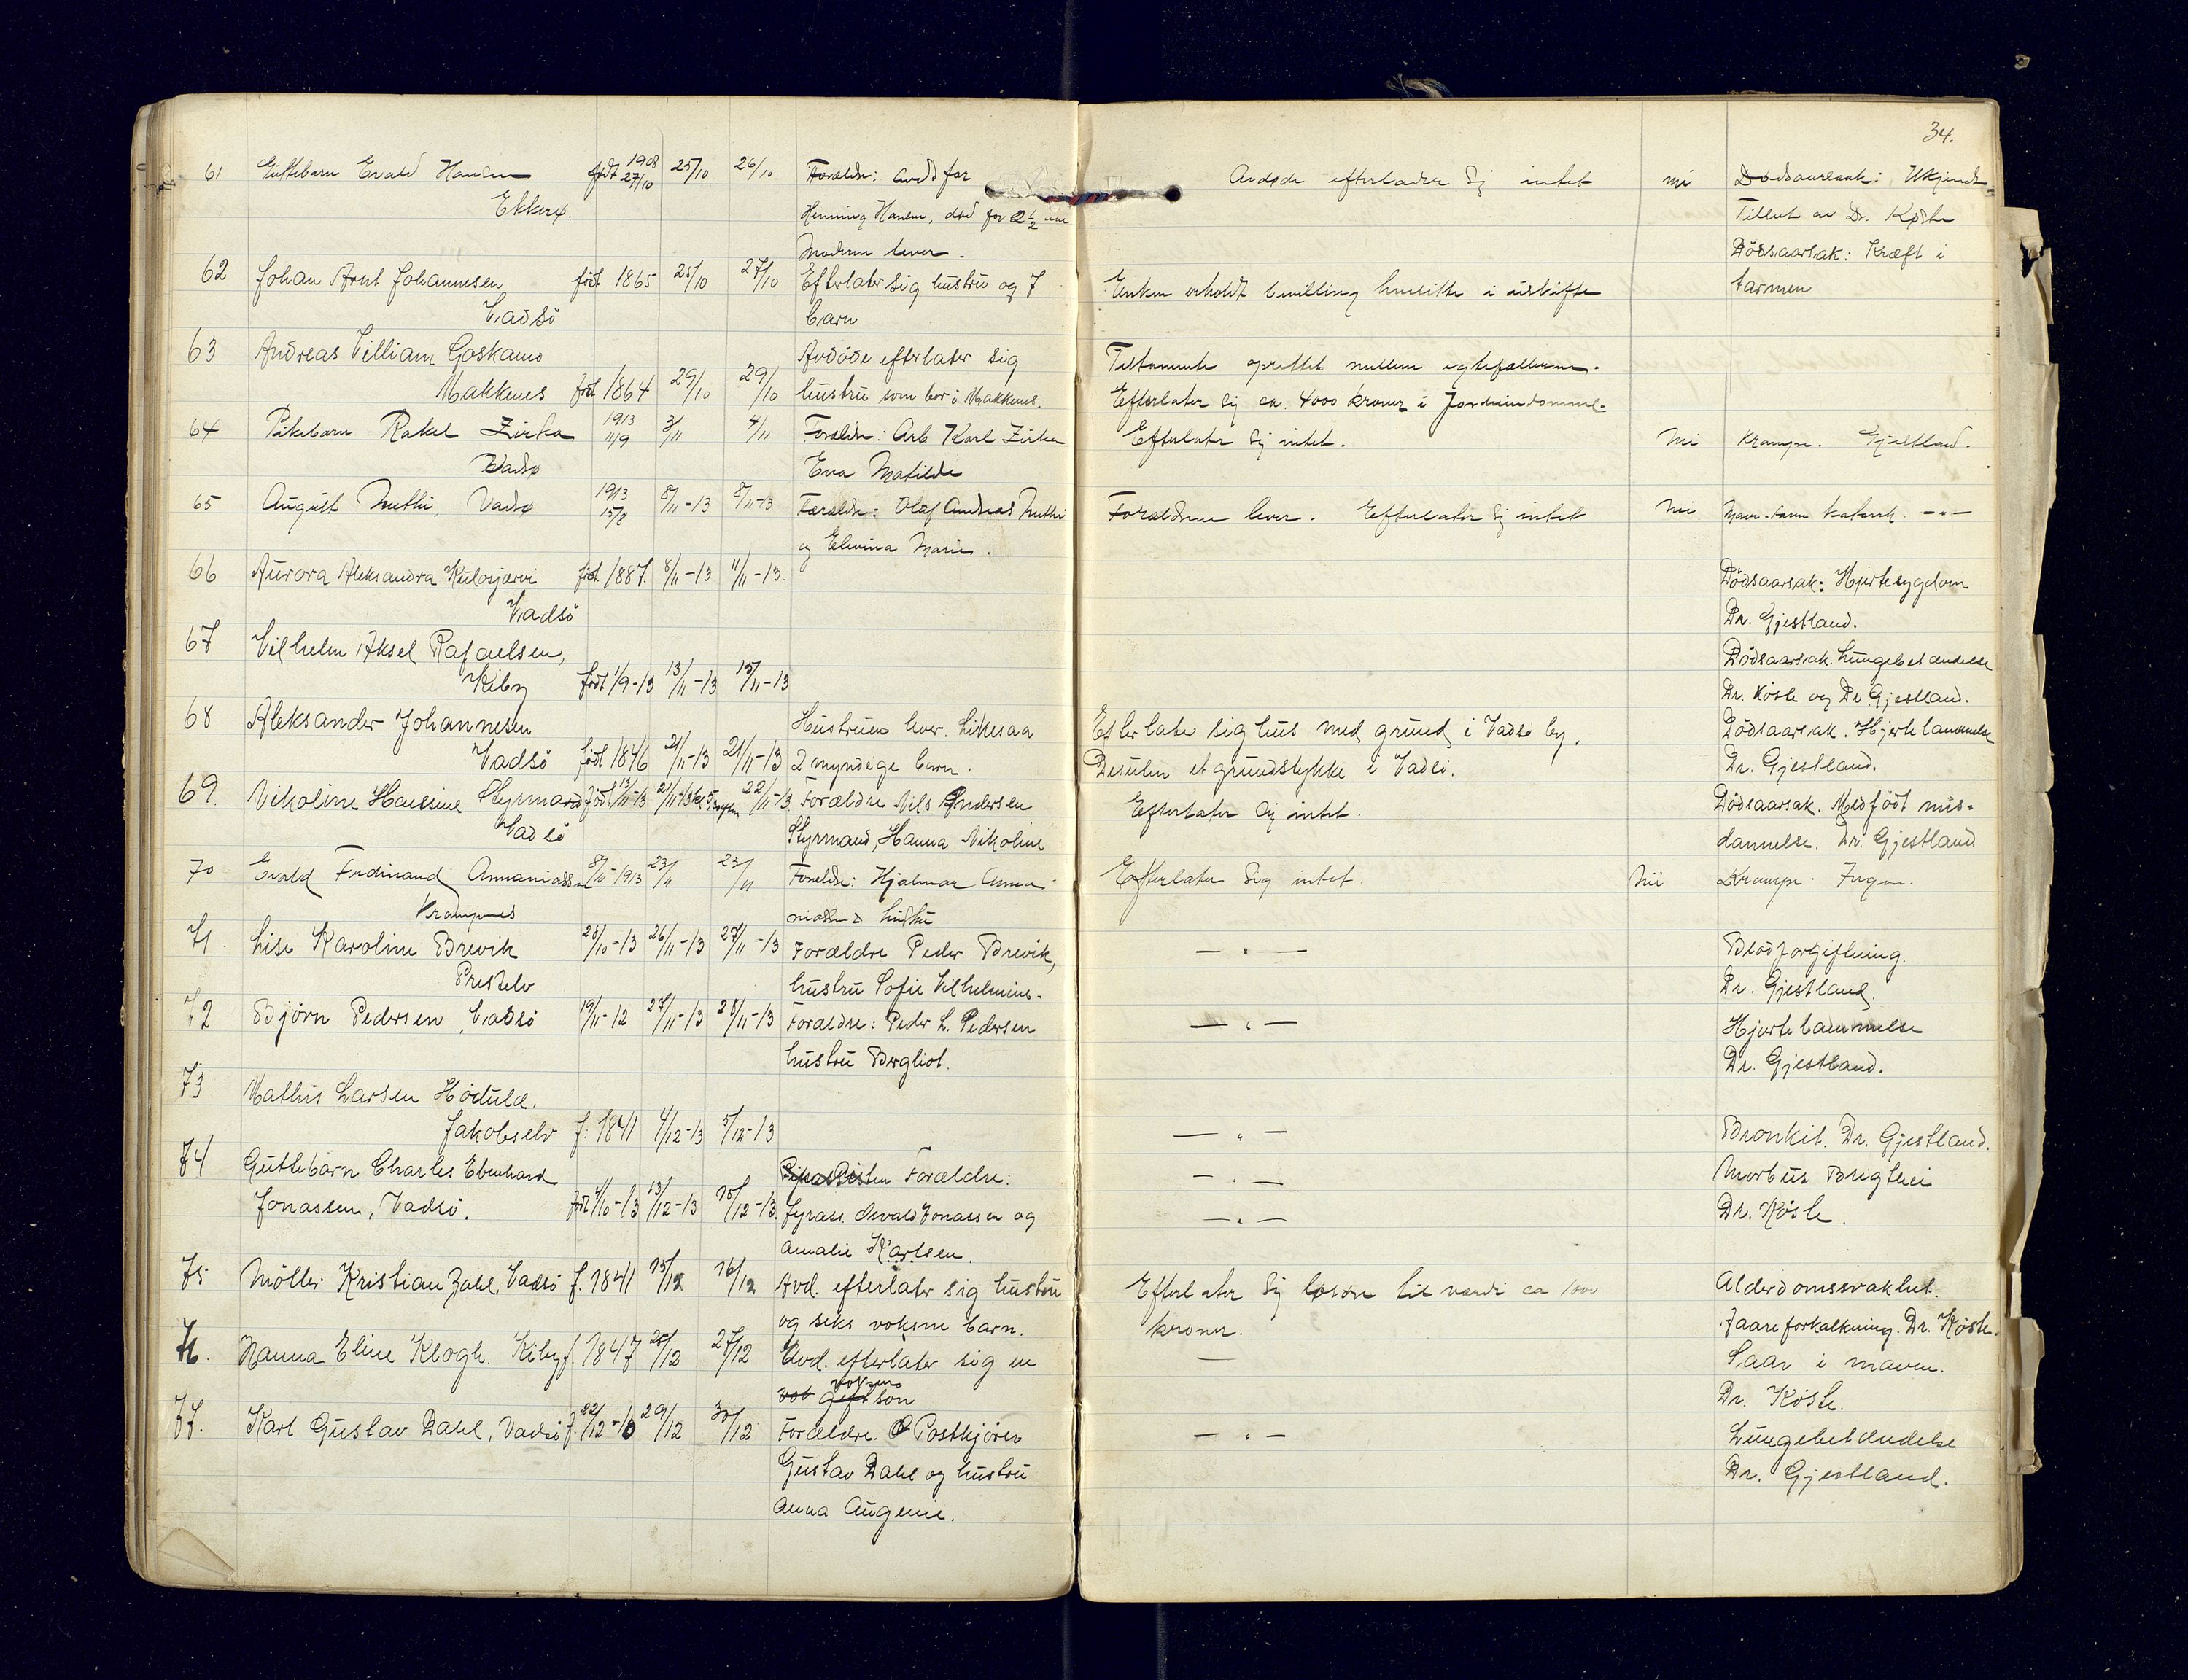 34.
61 Guttebarn Evald Hansen født 1908 27/10 25/10 26/10 Forældre: Avdød far Avdøde efterlader sig intet nei Dødsaarsak: Ukjendt
Ekkerø. Henning Hansen, død for 2½ aar Tillat av Dr. Køste
Moderen lever. Dödsaarsak: Kræft i
62 Johan Arnt Johannesen födt 1865 25/10 27/10 Efterlater sig hustru og 7 Enken erholdt bevilling hensitte i uskifte tarmen
Vadsö barn
63 Andreas Villiam Goskamo Avdöde efterlater sig Testamente oprettet mellem egtefællerne.
Makkenes födt 1864 29/10 29/10 hustru som bor i Makkenes. Efterlater sig ca. 4000 kroner i Jordeiendomme.
64 Pikebarn Rakel Zirka 1913 11/9 3/11 4/11 Forældre: Arb. Karl Zirka Efterlater sig intet. Nei Krampe. Gjestland.
Vadsø Eva Matilde
65 August Mathi, Vadsø 1913 15/8 8/11-13 8/11-13 Forældre: Olaf Andreas Mathi Forældrene lever. Efterlater sig intet Nei Mave-tarm katarrh. — " —
og Elevina Marie.
66 Aurora Aleksandra Kulosjærvi födt. 1887. 8/11-13 11/11-13. Dödsaarsak: Hjertesygdom
Vadsö Dr. Gjestland.
67 Vilhelm Aksel Rafaelsen, Dödsaarsak. Lungebetændelse
Kiby födt 1/9-13 13/11-13 15/11-13 Dr. Köste og Dr. Gjestland.
68 Aleksander Johannesen Hustruen lever. Likesaa Efterlater sig hus med grund i Vadsö by. Dödsaarsak. Hjertelammelse
Vadsö födt 1846 21/11-13 21/11-13 2 myndige barn. Desuten et grundstykke i Vadsö. Dr. Gjestland.
69. Nikoline Hansine Styrmand födt 13/11-13 21/11-13 22/11-13 Forældre Nils Andersen Efterlater sig intet. Dödsaarsak. Medfödt mis-
Vadsö Styrmand, Hanna Nikoline dannelse. Dr. Gjestland
70 Evald Ferdinand Annaniassen 8/10-1913 23/11 23/11 Forældre: Hjalmar Anna- Efterlater sig intet. Nei Krampe.
Krampnes niassen & hustru
71. Lise Karoline Brevik 28/10-13 26/11-13 27/11-13 Forældre Peder Brevik, — " — Blodforgiftning.
Prestelv hustru Sofie Vilhelmine. Dr. Gjestland.
72 Björn Pedersen, Vadsö 19/11-12 27/11-13 28/11-13 Forældre: Peder L. Pedersen — " — Hjertelammelse
hustru Bergliot. Dr. Gjestland.
73 Mathis Larsen
Jakobselv f. 1841 4/12-13 5/12-13 — " — Bronkit. Dr. Gjestland.
74 Guttebarn Charles Eberhard Forældre: — " — Morbus Brigthii
Jonassen, Vadsö. födt 4/10-13 13/12-13 15/12-13. fyrass. Osvald Jonassen og — " — Dr. Köste.
Amalie Karlsen.
75 Möller Kristian Zahl, Vadsö f. 1841 15/12 16/12 Avd. efterlater sig hustru Efterlater sig lösöre til værdi ca 1000 Alderdomssvakhet.
og seks voksne barn. kroner. Aareforkalkning. Dr. Köste.
76. Hanna Eline Klogh. Kiby f. 1847 26/12 27/12 Avd. efterlater sig en — Saar i maven.
voksen gift sön Dr. Köste.
77. Karl Gustav Dahl, Vadsö f. 22/12-10 29/12 30/12 Forældre. Postkjörer — " — Lungebetændelse
Gustav Dahl og hustru Dr. Gjestland.
Anna Augenie.